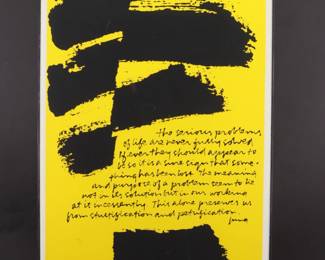 the serious problems
of life are never fully solved.
If ever they should appear to
be so it is a sure sign that some-
thing has been lost. The meaning
and purpose of a problem seem to lie
not in its solution but in our working
at it incessantly. This alone preserves us
from stultification and petrification.
jung